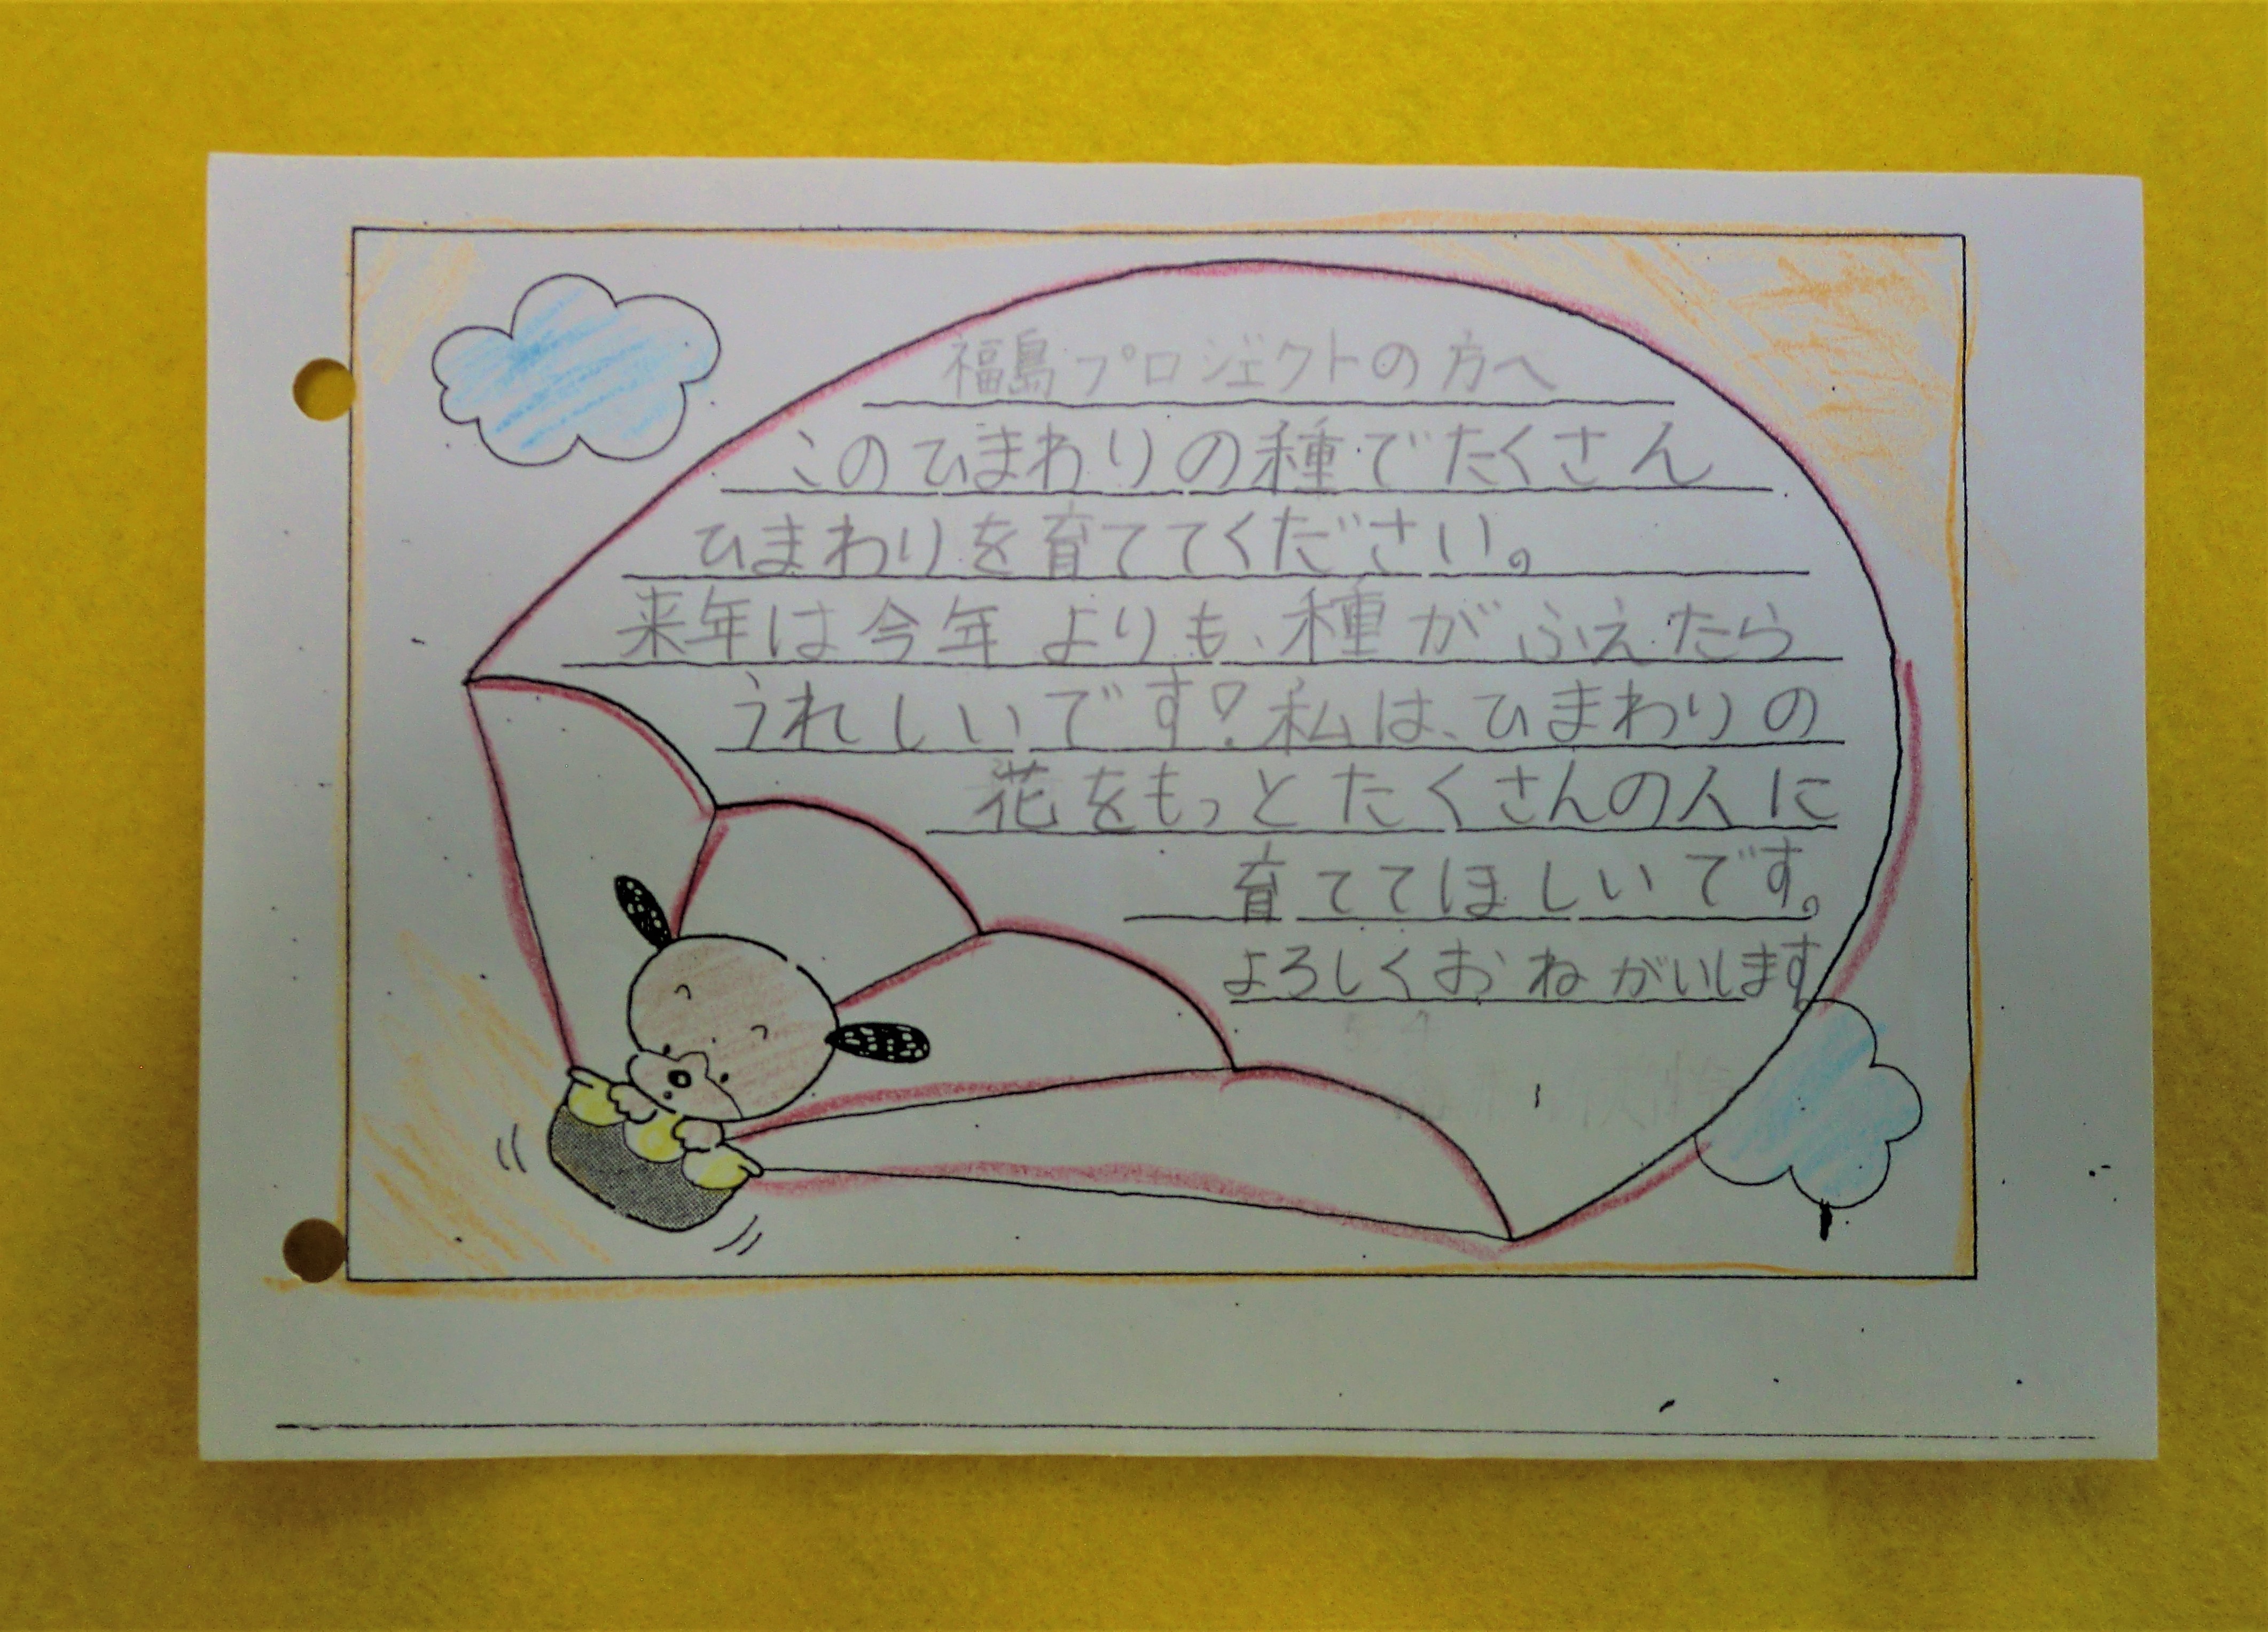 福島プロジェクトの方へ
このひまわりの種でたくさん
ひまわりを育ててください。
来年は今年よりも、種がふえたら
うれしいです!私は、ひまわりの
花をもっとたくさんの人に
育ててほしいです。
よろしくおねがいします